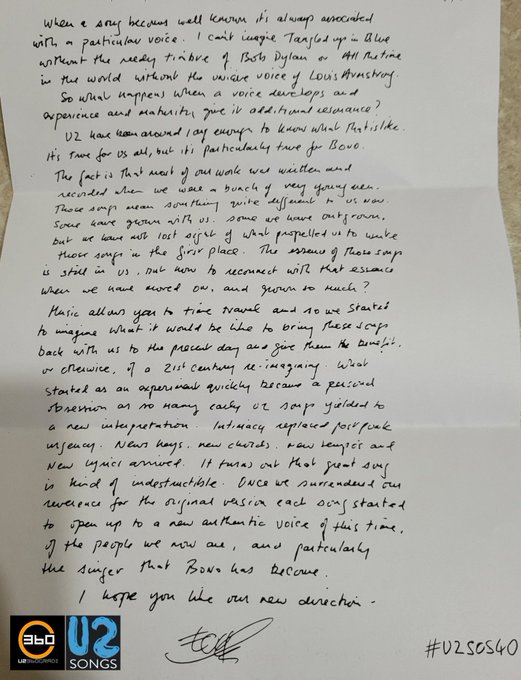 When a song becomes well known it's always associated
with a particular voice. I can't imagine Tangled up in Blue
without the reedy timbre of Bob Dylan or All the time
in the world without the unique voice of Louis Armstrong.
So what happens when a voice develops and
experience and maturity give it additional resonance?
U2 have been around long enough to know what that is like.
It's true for us all, but it's particularly true for Bono.
The fact is that most of our work was written and
recorded when we were a bunch of very young men.
Those songs mean something quite different to us now.
Some have grown with us. Some we have outgrown.
but we have not lost sight of what propelled us to write
those songs in the first place. The essence of those songs
is still in us, but how to reconnect with that essence
when we have moved on, and grown so much?
Music allows you to time travel and so we started
to imagine what it would be like to bring these songs
back with us to the present day and give them the benefit,
or otherwise, of a 21st century re-imagining. What
started as an experiment quickly became a personal
obsession as so many early U2 songs yielded to
a new interpretation. Intimacy replaced post punk
urgency. New keys. new chords. new tempos and
new lyrics arrived. It turns out that great song
is kind of indestructible. Once we surrendered our
reverence for the original version each song started
to open up to a new authentic voice of this time,
of the people we now are, and particularly
the singer that Bono has become.
I hope you like our new direction.
360
U2360GRADI
U2
SONGS
#U2SOS40